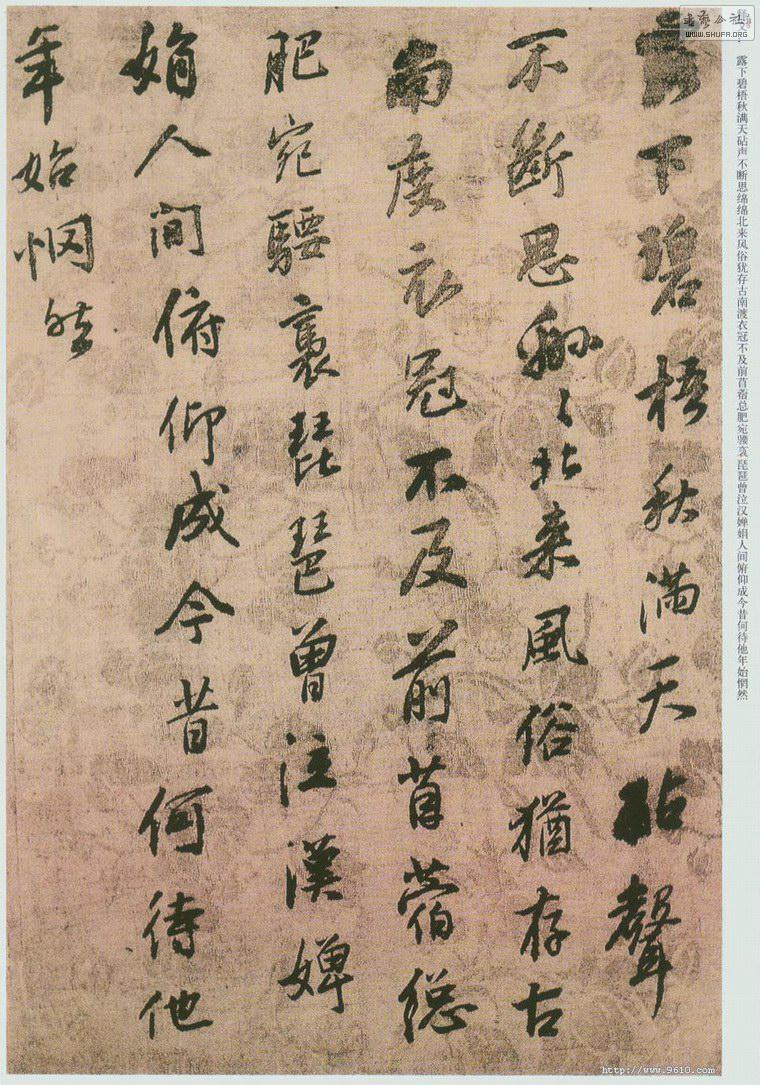 露下碧梧秋满天砧聲
不斷思綿〻北来風俗猶存古
南度衣冠不及前苜蓿總
肥宛騕裊琵琶曾泣漢嬋
娟人間俯仰成今昔何待他
年始惘然
露下碧梧秋满天砧声不断思绵绵北来风俗犹存古南渡衣冠不及前苜蓿总肥宛騕袅琵琶曾泣汉婵娟人间俯仰成今昔何待他年始惘然
書藝公社
WWW.SHUFA.ORG
http://www.9610.com